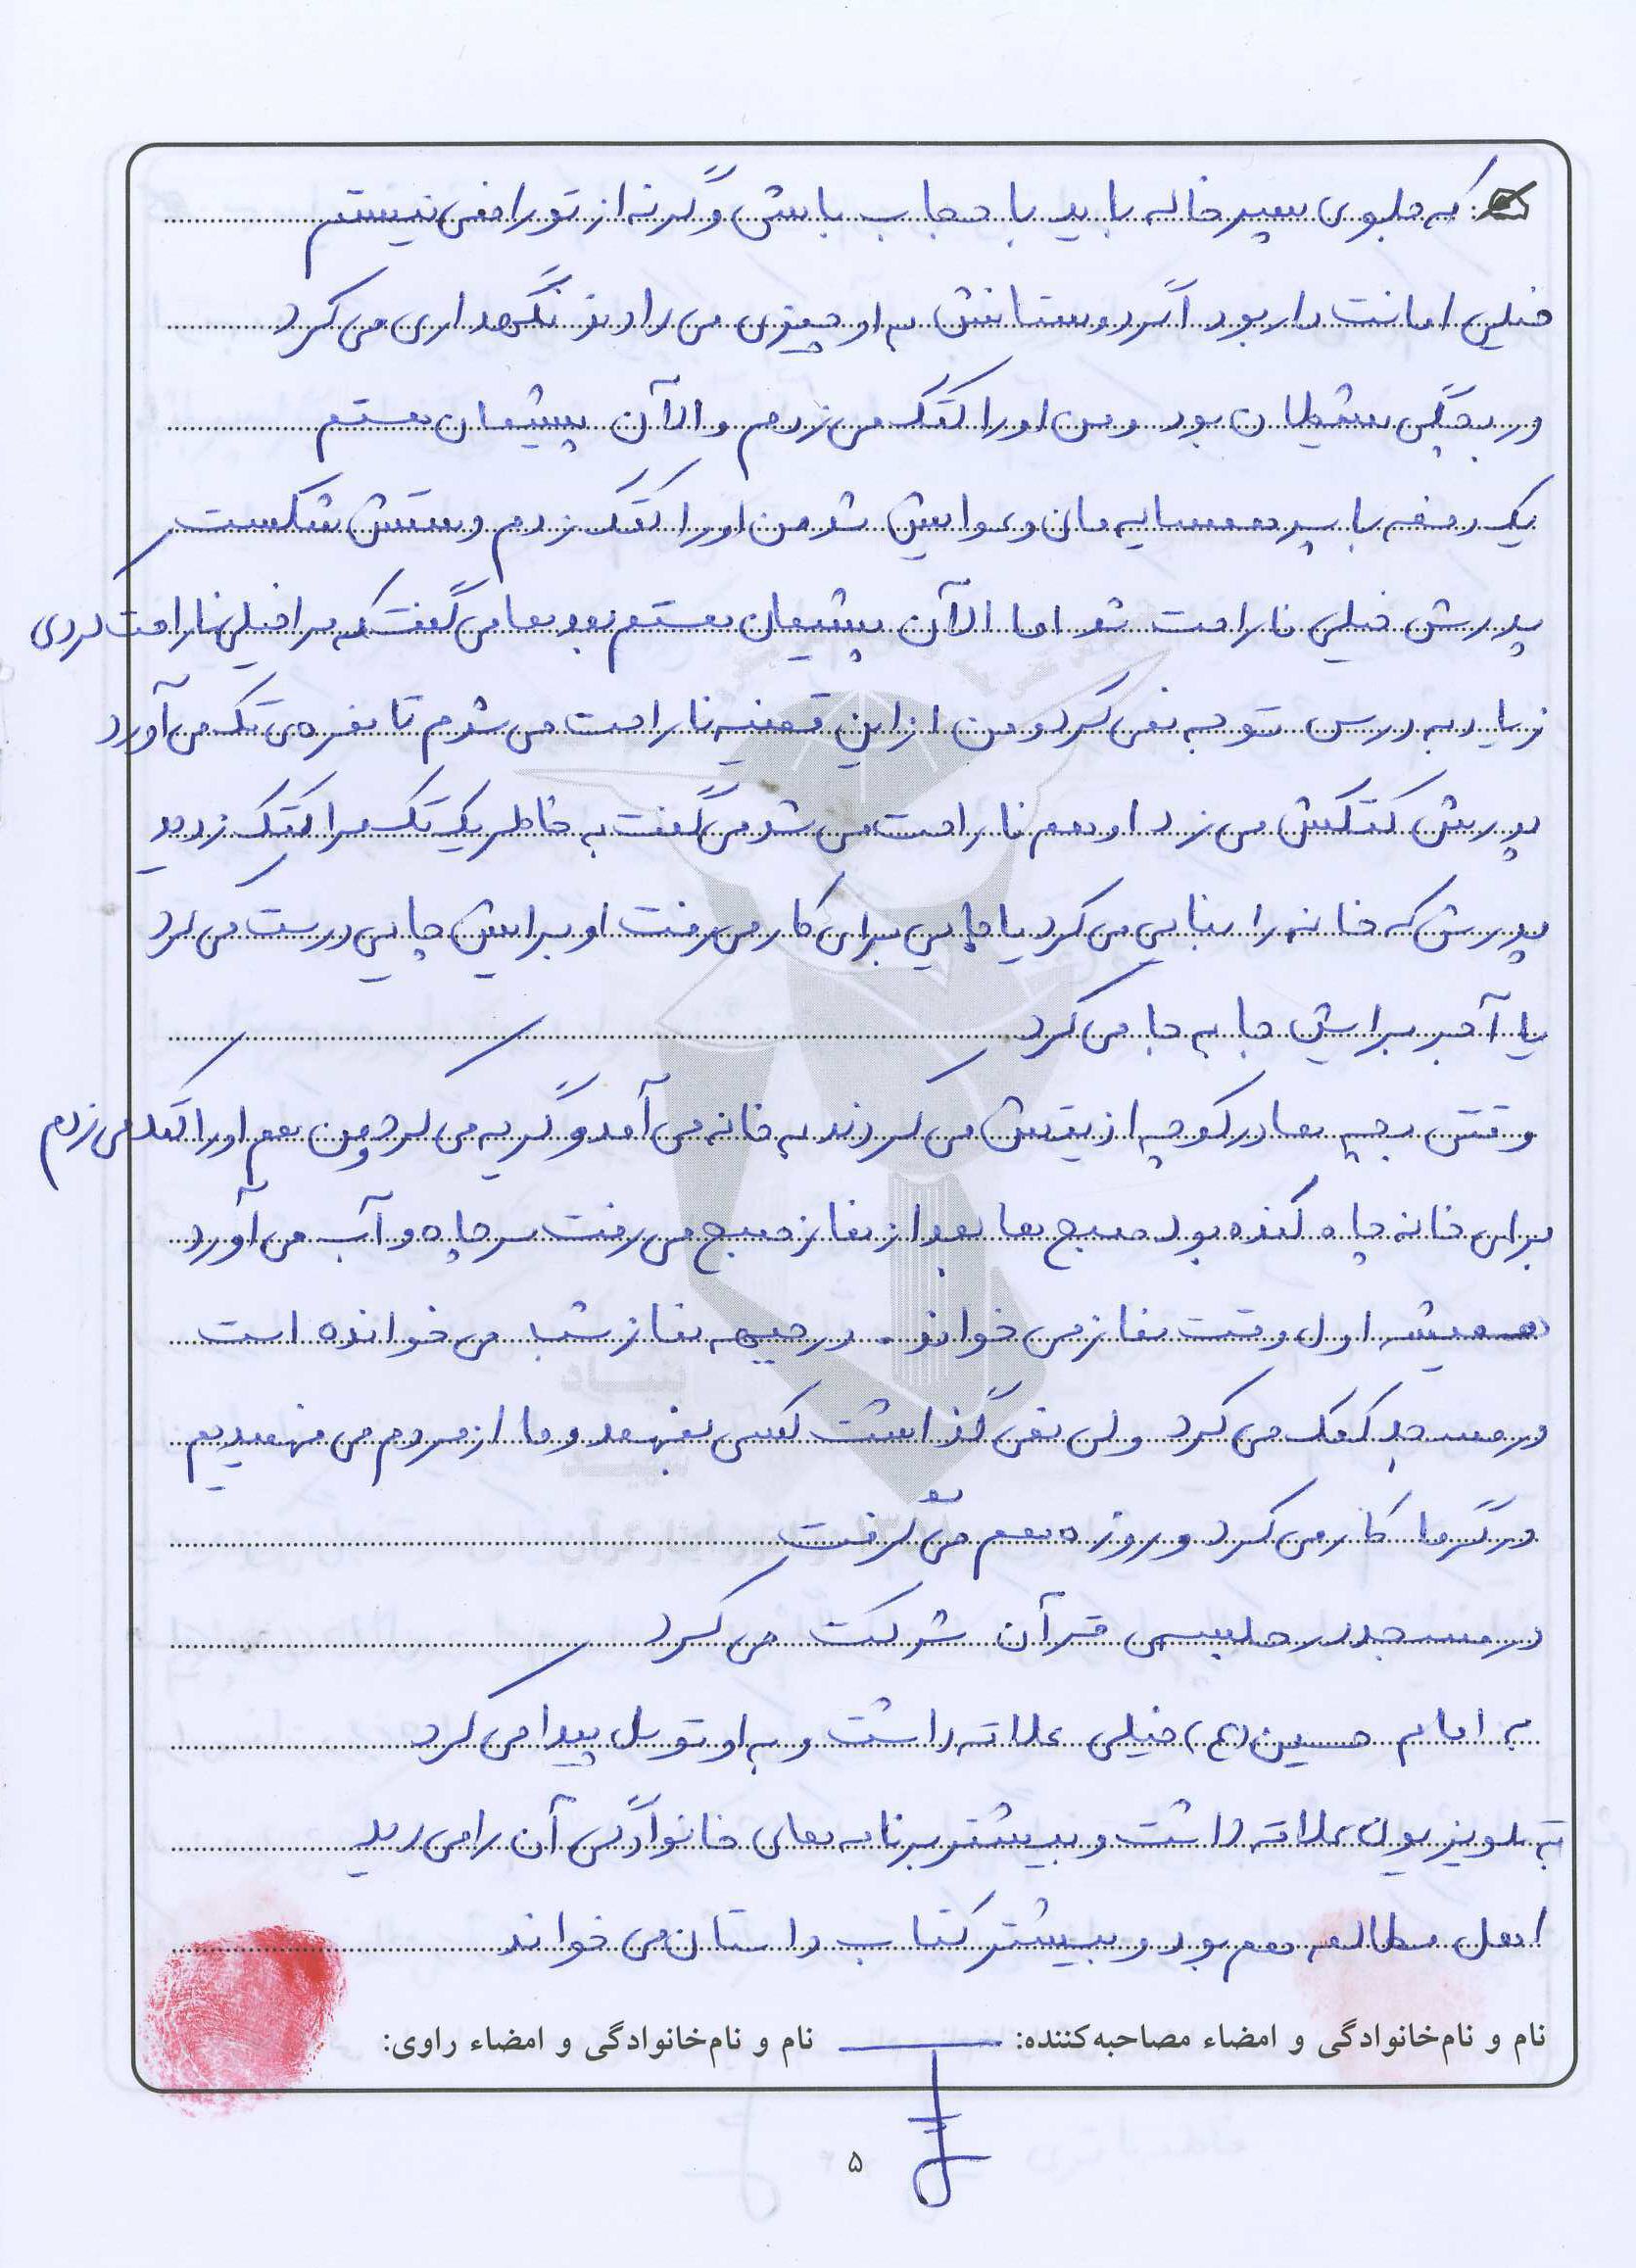 که جلوی پسر خاله باید با حجاب باشی وگرنه از تو راضی نیستم
خیلی امانت دار بود اگر دوستانش به او چیزی می دادند نگهداری می کرد
در بچگی شیطان بود و من او را کتک می زدم و الآن پشیمان هستم
یک دفعه با پسر همسایه مان دعوایش شد من او را کتک زدم دستش شکست
پدرش خیلی ناراحت شد اما الآن پشیمان هستم بعدها می گفت که مرا خیلی ناراحت کردی
زیاد به درس توجه نمی کرد و من از این قضیه ناراحت می شدم تا نمره ی تک می آورد
پدرش کتکش می زد او هم ناراحت می شد می گفت به خاطر یک تک مرا کتک زدید
پدرش که خانه را بنایی می کرد یا جایی برای کار می رفت او برایش چایی درست می کرد
یا آجر برایش جا به جا می کرد
وقتی بچه ها در کوچه اذیتش می کردند به خانه می آمد و گریه می کرد و من هم او را کتک می زدم
برای خانه چاه کنده بود صبح ها بعد از نماز صبح می رفت سر چاه و آب می آورد
همیشه اول وقت نماز می خواند. در جبهه نماز شب می خوانده است
در مسجد کمک می کرد ولی نمی گذاشت کسی بفهمد و ما از مردم می فهمیدیم
در گرما کار می کرد و روزه هم می گرفت
در مسجد در جلسه ی قرآن شرکت می کرد
به امام حسین (ع) خیلی علاقه داشت و به او توسل پیدا می کرد
به تلویزیون علاقه داشت و بیشتر برنامه های خانوادگی آن را می دید
اهل مطالعه هم بود و بیشتر کتاب داستان می خواند
نام و نام‌خانوادگی و امضاء مصاحبه‌کننده: نام و نام‌خانوادگی و امضاء راوی:
۵